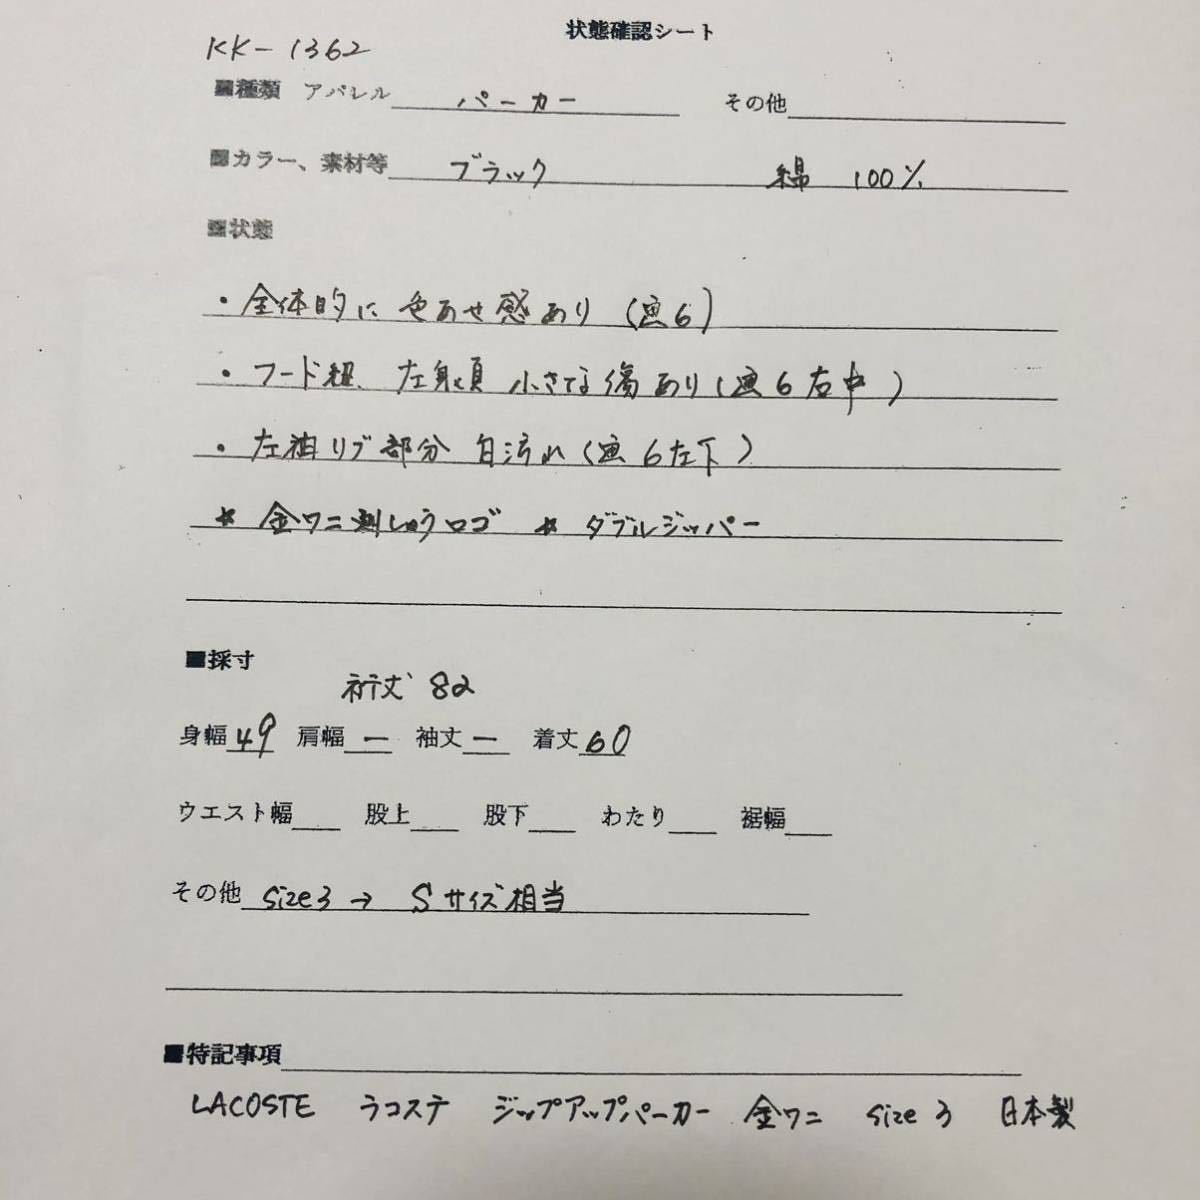 状態確認シート
KK-1362
■種類 アパレル パーカー その他
■カラー、素材等 ブラック 綿 100%
■状態
・全体的に 色あせ感あり (画6)
・フード紐、左身頃 小さな傷あり (画6右中)
・左袖リブ部分 白汚れ (画6左下)
* 金ワニ刺しゅうロゴ * ダブルジッパー
■採寸
裄丈 82
身幅 49 肩幅 ー 袖丈 ー 着丈 60
ウエスト幅 股上 股下 わたり 裾幅
その他 size3 → Sサイズ相当
■特記事項
LACOSTE ラコステ ジップアップパーカー 金ワニ size 3 日本製